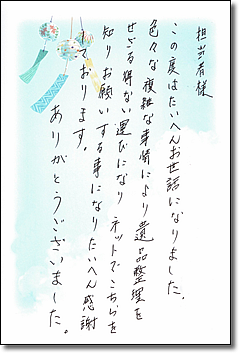 担当者様
この度はたいへんお世話になりました。
色々な複雑な事情により遺品整理を
せざる得ない運びになり ネットでこちらを
知りお願いする事になりたいへん感謝
しております。
ありがとうございました。